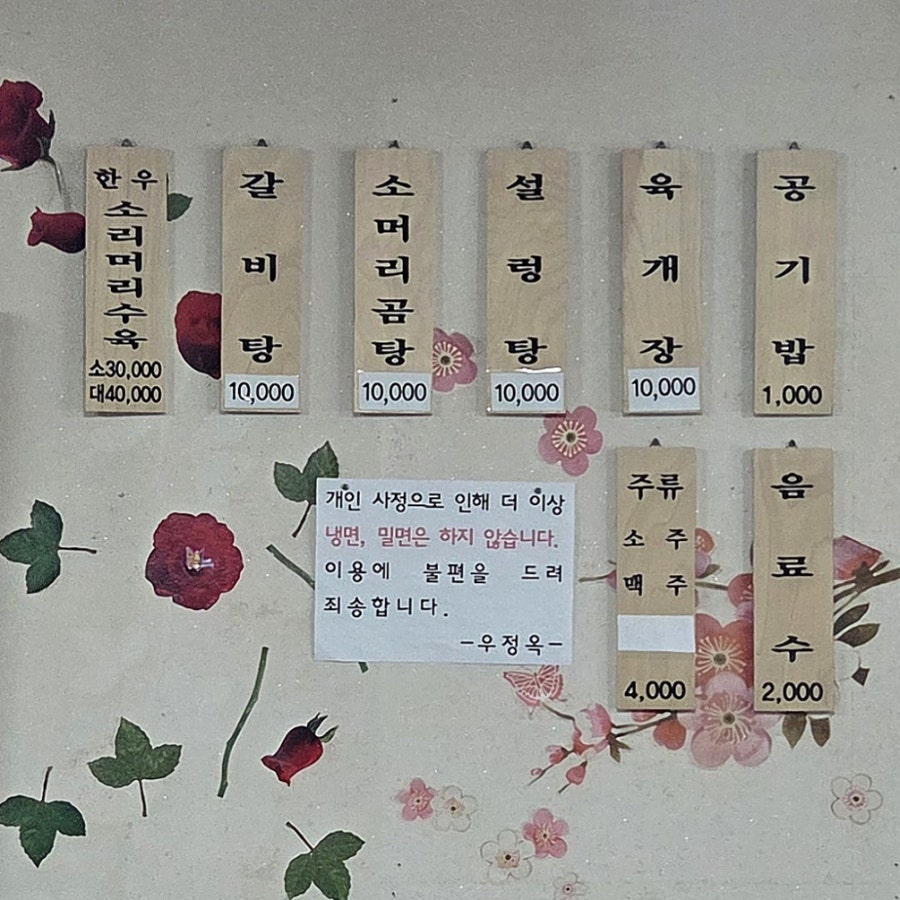 한우
소리머리수육
소30,000
대40,000
갈비탕
10,000
소머리곰탕
10,000
설렁탕
10,000
육개장
10,000
공기밥
1,000
개인 사정으로 인해 더 이상
냉면, 밀면은 하지 않습니다.
이용에 불편을 드려
죄송합니다.
-우정옥-
주류
소 주
맥 주
4,000
음료수
2,000